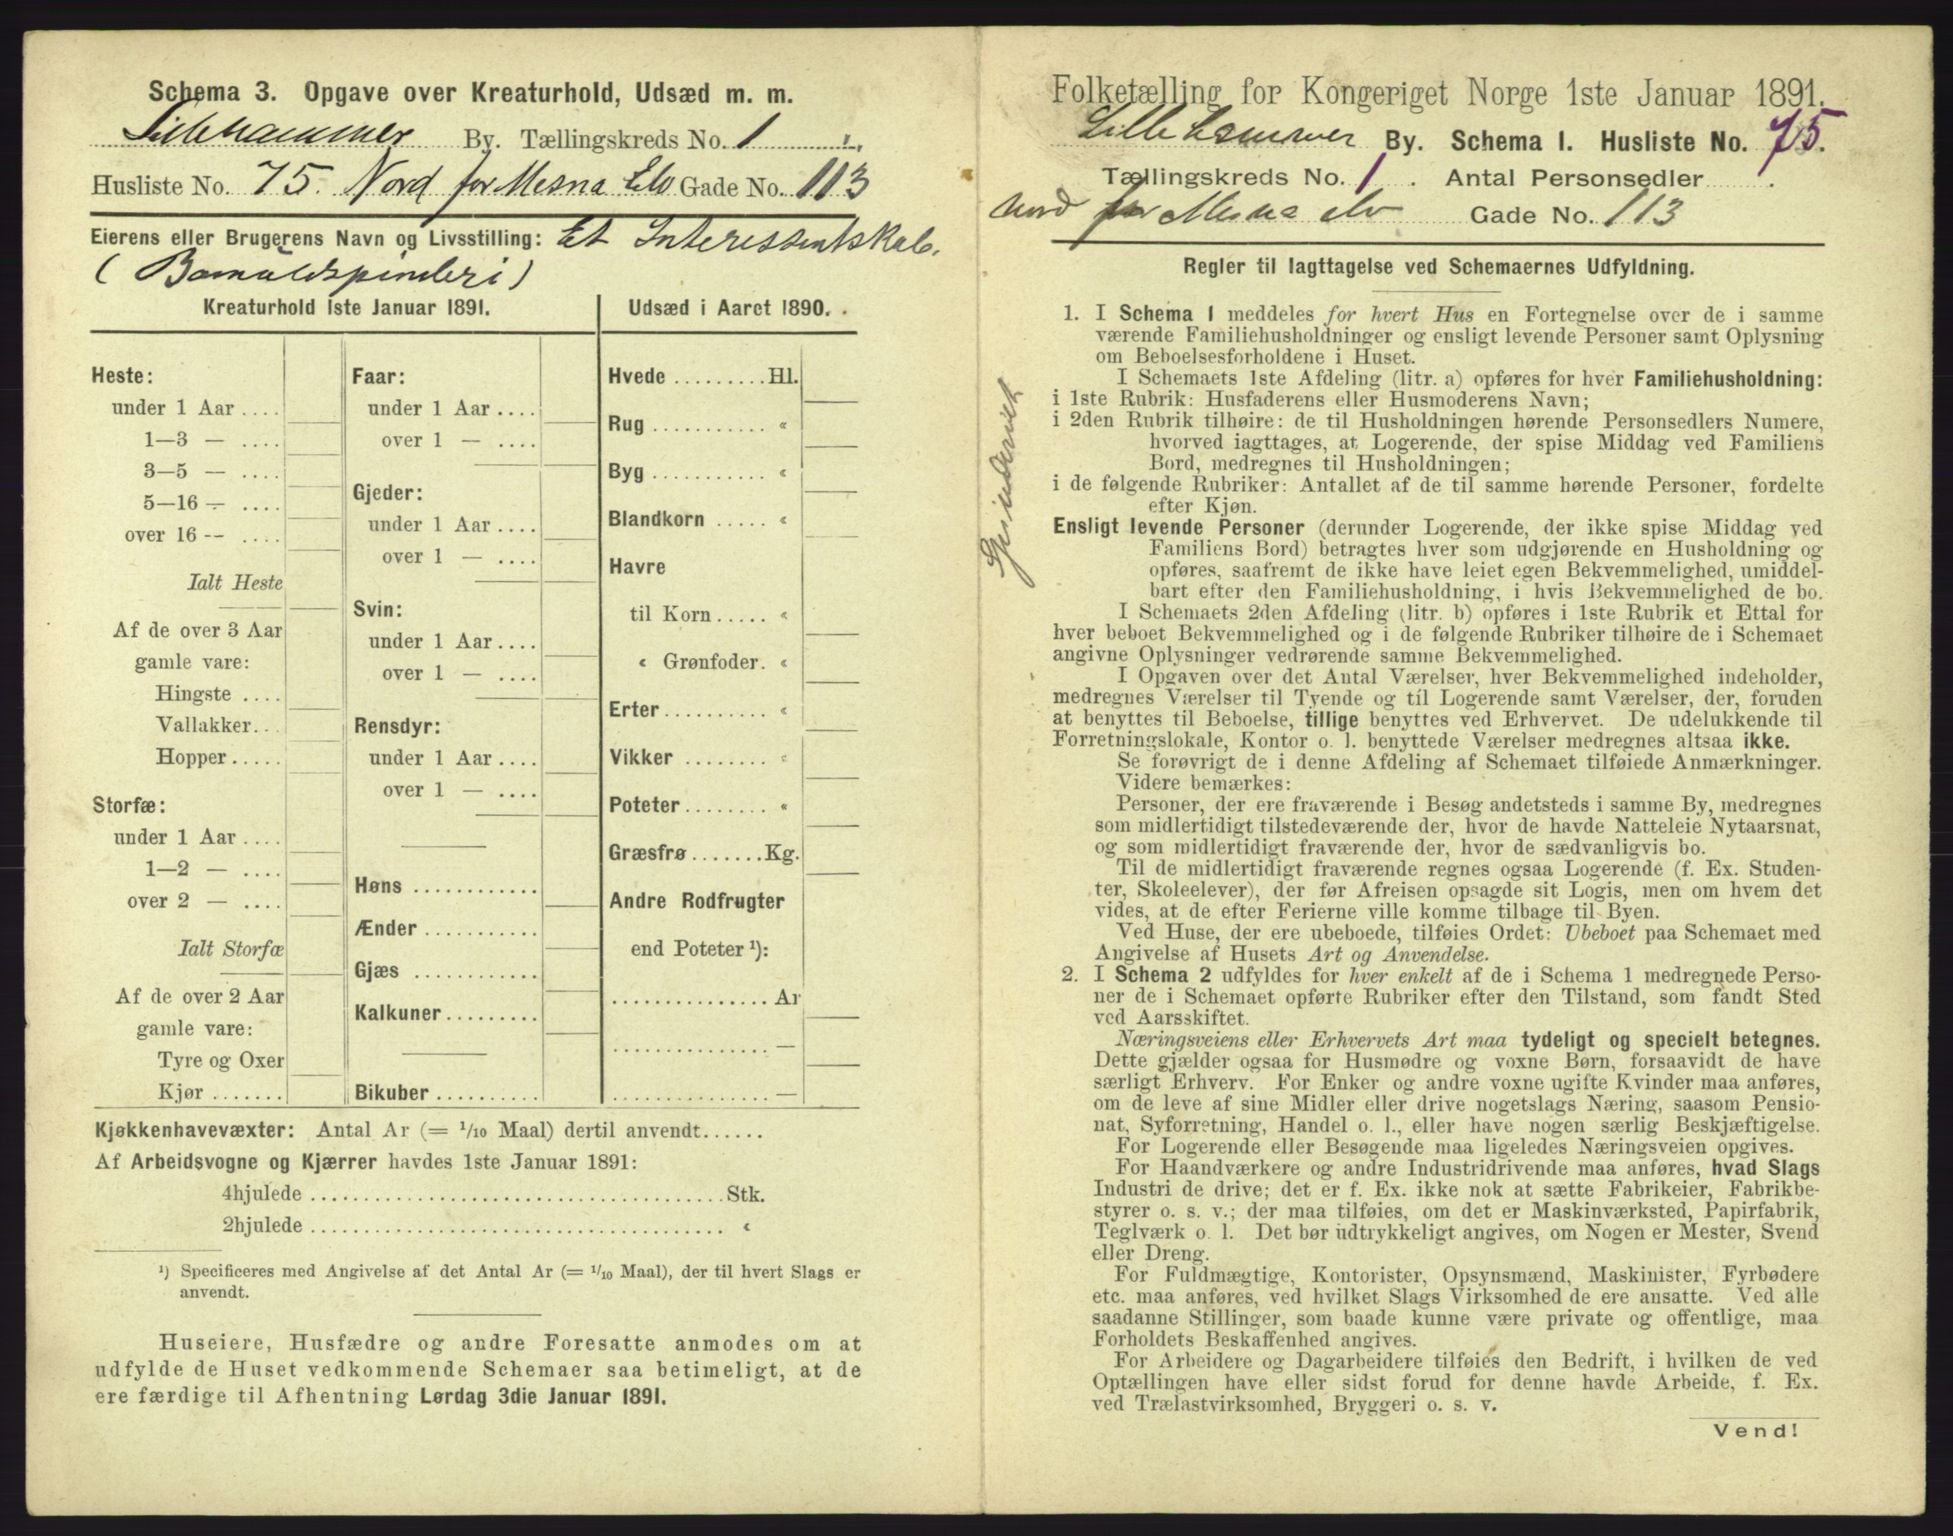 Schema 3. Opgave over Kreaturhold, Udsæd m. m.
Lillehammer By. Tællingskreds No. 1
Husliste No. 75. Nord for Mesna Elv Gade No. 113
Eierens eller Brugerens Navn og Livsstilling: Et Interessentskab.
(Bomuldspinderi)
Kreaturhold 1ste Januar 1891.
Heste:
under 1 Aar ....
1—3 — ....
3—5 — ....
5—16 — ....
over 16 — ....
Ialt Heste
Af de over 3 Aar
gamle vare:
Hingste ....
Vallakker...
Hopper.....
Storfæ:
under 1 Aar ....
1—2 — ....
over 2 — ....
Ialt Storfæ
Af de over 2 Aar
gamle vare:
Tyre og Oxer
Kjør .......
Faar:
under 1 Aar ....
over 1 — ....
Gjeder:
under 1 Aar ....
over 1 — ....
Svin:
under 1 Aar ....
over 1 — ....
Rensdyr:
under 1 Aar ....
over 1 — ....
Høns ............
Ænder ...........
Gjæs ............
Kalkuner.........
Bikuber ..........
Udsæd i Aaret 1890.
Hvede .........Hl.
Rug ........... «
Byg ........... «
Blandkorn ..... «
Havre
til Korn..... «
« Grønfoder. «
Erter.......... «
Vikker ........ «
Poteter........ «
Græsfrø.......Kg.
Andre Rodfrugter
end Poteter ¹):
............... Ar
............... —
............... —
Kjøkkenhavevæxter: Antal Ar (= 1/10 Maal) dertil anvendt......
Af Arbeidsvogne og Kjærrer havdes 1ste Januar 1891:
4hjulede ........................................Stk.
2hjulede ........................................ «
¹) Specificeres med Angivelse af det Antal Ar (= 1/10 Maal), der til hvert Slags er
anvendt.
Huseiere, Husfædre og andre Foresatte anmodes om at
udfylde de Huset vedkommende Schemaer saa betimeligt, at de
ere færdige til Afhentning Lørdag 3die Januar 1891.
Folketælling for Kongeriget Norge 1ste Januar 1891.
Lillehammer By. Schema I. Husliste No. 75.
Tællingskreds No. 1. Antal Personsedler .
Nord for Mesna elv Gade No. 113
Spinderiet
Regler til Iagttagelse ved Schemaernes Udfyldning.
1. I Schema I meddeles for hvert Hus en Fortegnelse over de i samme
værende Familiehusholdninger og ensligt levende Personer samt Oplysning
om Beboelsesforholdene i Huset.
I Schemaets 1ste Afdeling (litr. a) opføres for hver Familiehusholdning:
i 1ste Rubrik: Husfaderens eller Husmoderens Navn;
i 2den Rubrik tilhøire: de til Husholdningen hørende Personsedlers Numere,
hvorved iagttages, at Logerende, der spise Middag ved Familiens
Bord, medregnes til Husholdningen;
i de følgende Rubriker: Antallet af de til samme hørende Personer, fordelte
efter Kjøn.
Ensligt levende Personer (derunder Logerende, der ikke spise Middag ved
Familiens Bord) betragtes hver som udgjørende en Husholdning og
opføres, saafremt de ikke have leiet egen Bekvemmelighed, umiddel-
bart efter den Familiehusholdning, i hvis Bekvemmelighed de bo.
I Schemaets 2den Afdeling (litr. b) opføres i 1ste Rubrik et Ettal for
hver beboet Bekvemmelighed og i de følgende Rubriker tilhøire de i Schemaet
angivne Oplysninger vedrørende samme Bekvemmelighed.
I Opgaven over det Antal Værelser, hver Bekvemmelighed indeholder,
medregnes Værelser til Tyende og til Logerende samt Værelser, der, foruden
at benyttes til Beboelse, tillige benyttes ved Erhvervet. De udelukkende til
Forretningslokale, Kontor o. l. benyttede Værelser medregnes altsaa ikke.
Se forøvrigt de i denne Afdeling af Schemaet tilføiede Anmærkninger.
Videre bemærkes:
Personer, der ere fraværende i Besøg andetsteds i samme By, medregnes
som midlertidigt tilstedeværende der, hvor de havde Natteleie Nytaarsnat,
og som midlertidigt fraværende der, hvor de sædvanligvis bo.
Til de midlertidigt fraværende regnes ogsaa Logerende (f. Ex. Studen-
ter, Skoleelever), der før Afreisen opsagde sit Logis, men om hvem det
vides, at de efter Ferierne ville komme tilbage til Byen.
Ved Huse, der ere ubeboede, tilføies Ordet: Ubeboet paa Schemaet med
Angivelse af Husets Art og Anvendelse.
2. I Schema 2 udfyldes for hver enkelt af de i Schema 1 medregnede Perso-
ner de i Schemaet opførte Rubriker efter den Tilstand, som fandt Sted
ved Aarsskiftet.
Næringsveiens eller Erhvervets Art maa tydeligt og specielt betegnes.
Dette gjælder ogsaa for Husmødre og voxne Børn, forsaavidt de have
særligt Erhverv. For Enker og andre voxne ugifte Kvinder maa anføres,
om de leve af sine Midler eller drive nogetslags Næring, saasom Pensio-
nat, Syforretning, Handel o. l., eller have nogen særlig Beskjæftigelse.
For Logerende eller Besøgende maa ligeledes Næringsveien opgives.
For Haandværkere og andre Industridrivende maa anføres, hvad Slags
Industri de drive; det er f. Ex. ikke nok at sætte Fabrikeier, Fabrikbe-
styrer o. s. v.; der maa tilføies, om det er Maskinværksted, Papirfabrik,
Teglværk o. l. Det bør udtrykkeligt angives, om Nogen er Mester, Svend
eller Dreng.
For Fuldmægtige, Kontorister, Opsynsmænd, Maskinister, Fyrbødere
etc. maa anføres, ved hvilket Slags Virksomhed de ere ansatte. Ved alle
saadanne Stillinger, som baade kunne være private og offentlige, maa
Forholdets Beskaffenhed angives.
For Arbeidere og Dagarbeidere tilføies den Bedrift, i hvilken de ved
Optællingen have eller sidst forud for denne havde Arbeide, f. Ex.
ved Trælastvirksomhed, Bryggeri o. s. v.
Vend!